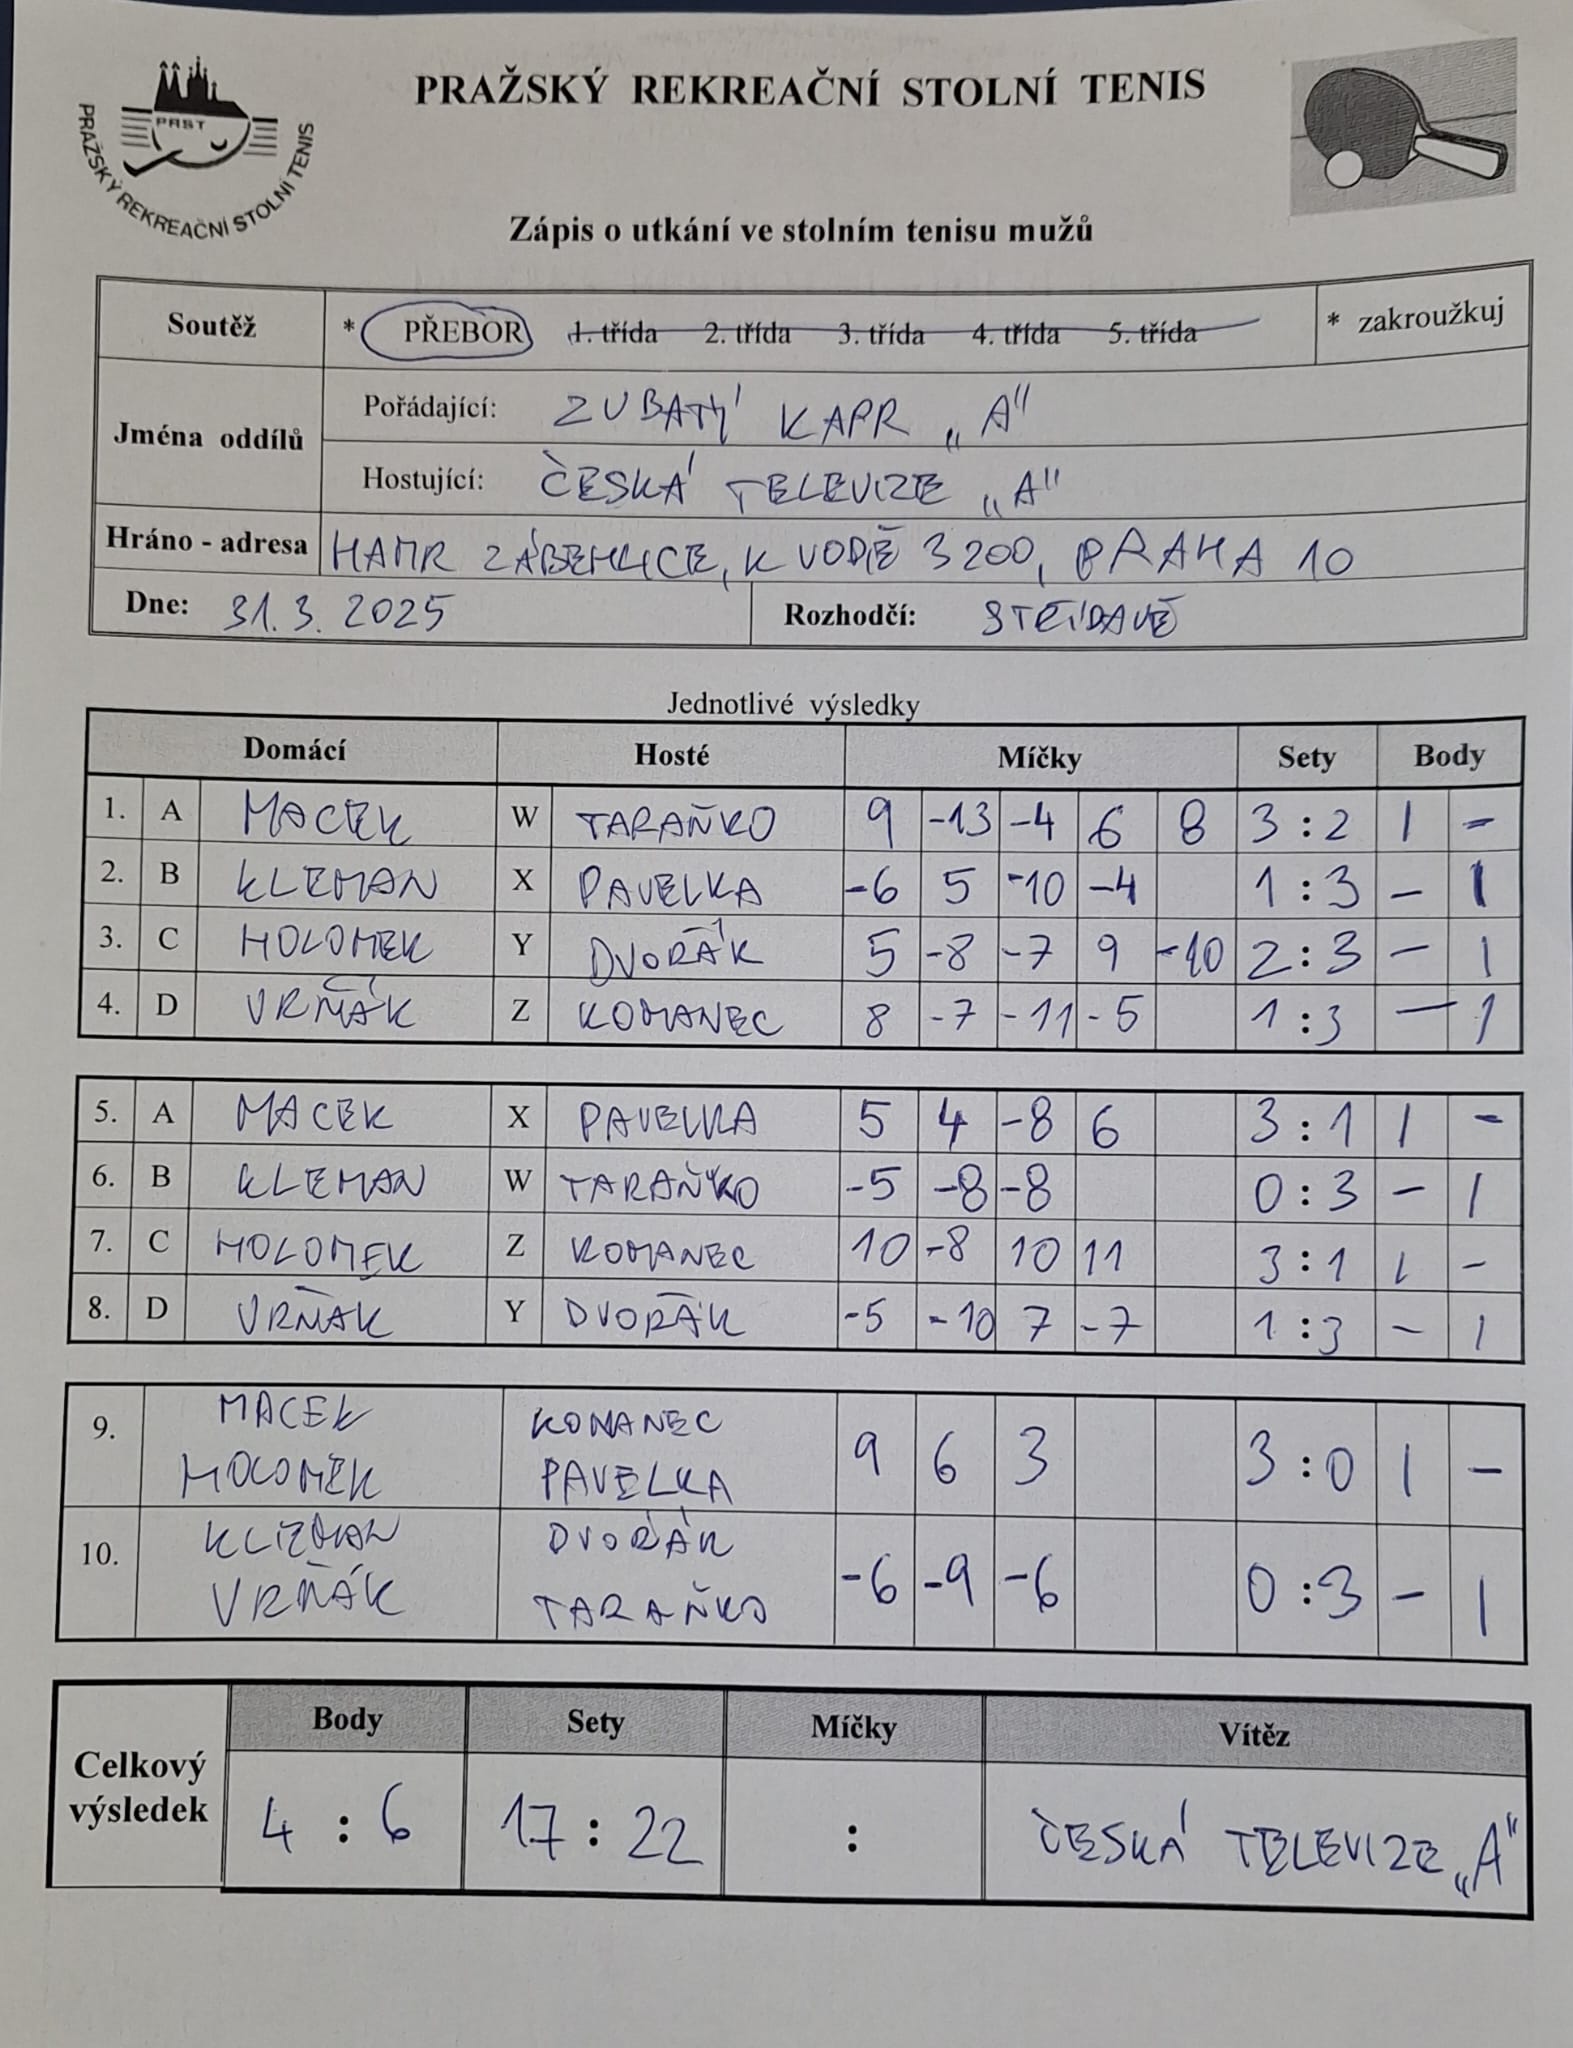 PRST
PRAŽSKÝ REKREAČNÍ STOLNÍ TENIS
PRAŽSKÝ REKREAČNÍ STOLNÍ TENIS
Zápis o utkání ve stolním tenisu mužů
Soutěž * PŘEBOR 1. třída 2. třída 3. třída 4. třída 5. třída * zakroužkuj
Jména oddílů
Pořádající: ZUBATÝ KAPR „A"
Hostující: ČESKÁ TELEVIZE „A"
Hráno - adresa HAMR ZÁBEHLICE, K VODĚ 3200, PRAHA 10
Dne: 31. 3. 2025 Rozhodčí: STŘÍDAVĚ
Jednotlivé výsledky
Domácí Hosté Míčky Sety Body
1. A MACEK W TARAŇKO 9 -13 -4 6 8 3 : 2 1 -
2. B KLEMAN X PAVELKA -6 5 -10 -4 1 : 3 - 1
3. C HOLOMEK Y DVOŘÁK 5 -8 -7 9 -10 2 : 3 - 1
4. D VRŇÁK Z KOMANEC 8 -7 -11 -5 1 : 3 - 1
5. A MACEK X PAVELKA 5 4 -8 6 3 : 1 1 -
6. B KLEMAN W TARAŇKO -5 -8 -8 0 : 3 - 1
7. C HOLOMEK Z KOMANEC 10 -8 10 11 3 : 1 1 -
8. D VRŇAK Y DVOŘÁK -5 -10 7 -7 1 : 3 - 1
9. MACEK KOMANEC
HOLOMEK PAVELKA 9 6 3 3 : 0 1 -
10. KLEMAN DVOŘÁK
VRŇÁK TARAŇKO -6 -9 -6 0 : 3 - 1
Celkový výsledek
Body Sety Míčky Vítěz
4 : 6 17 : 22 : ČESKÁ TELEVIZE „A"